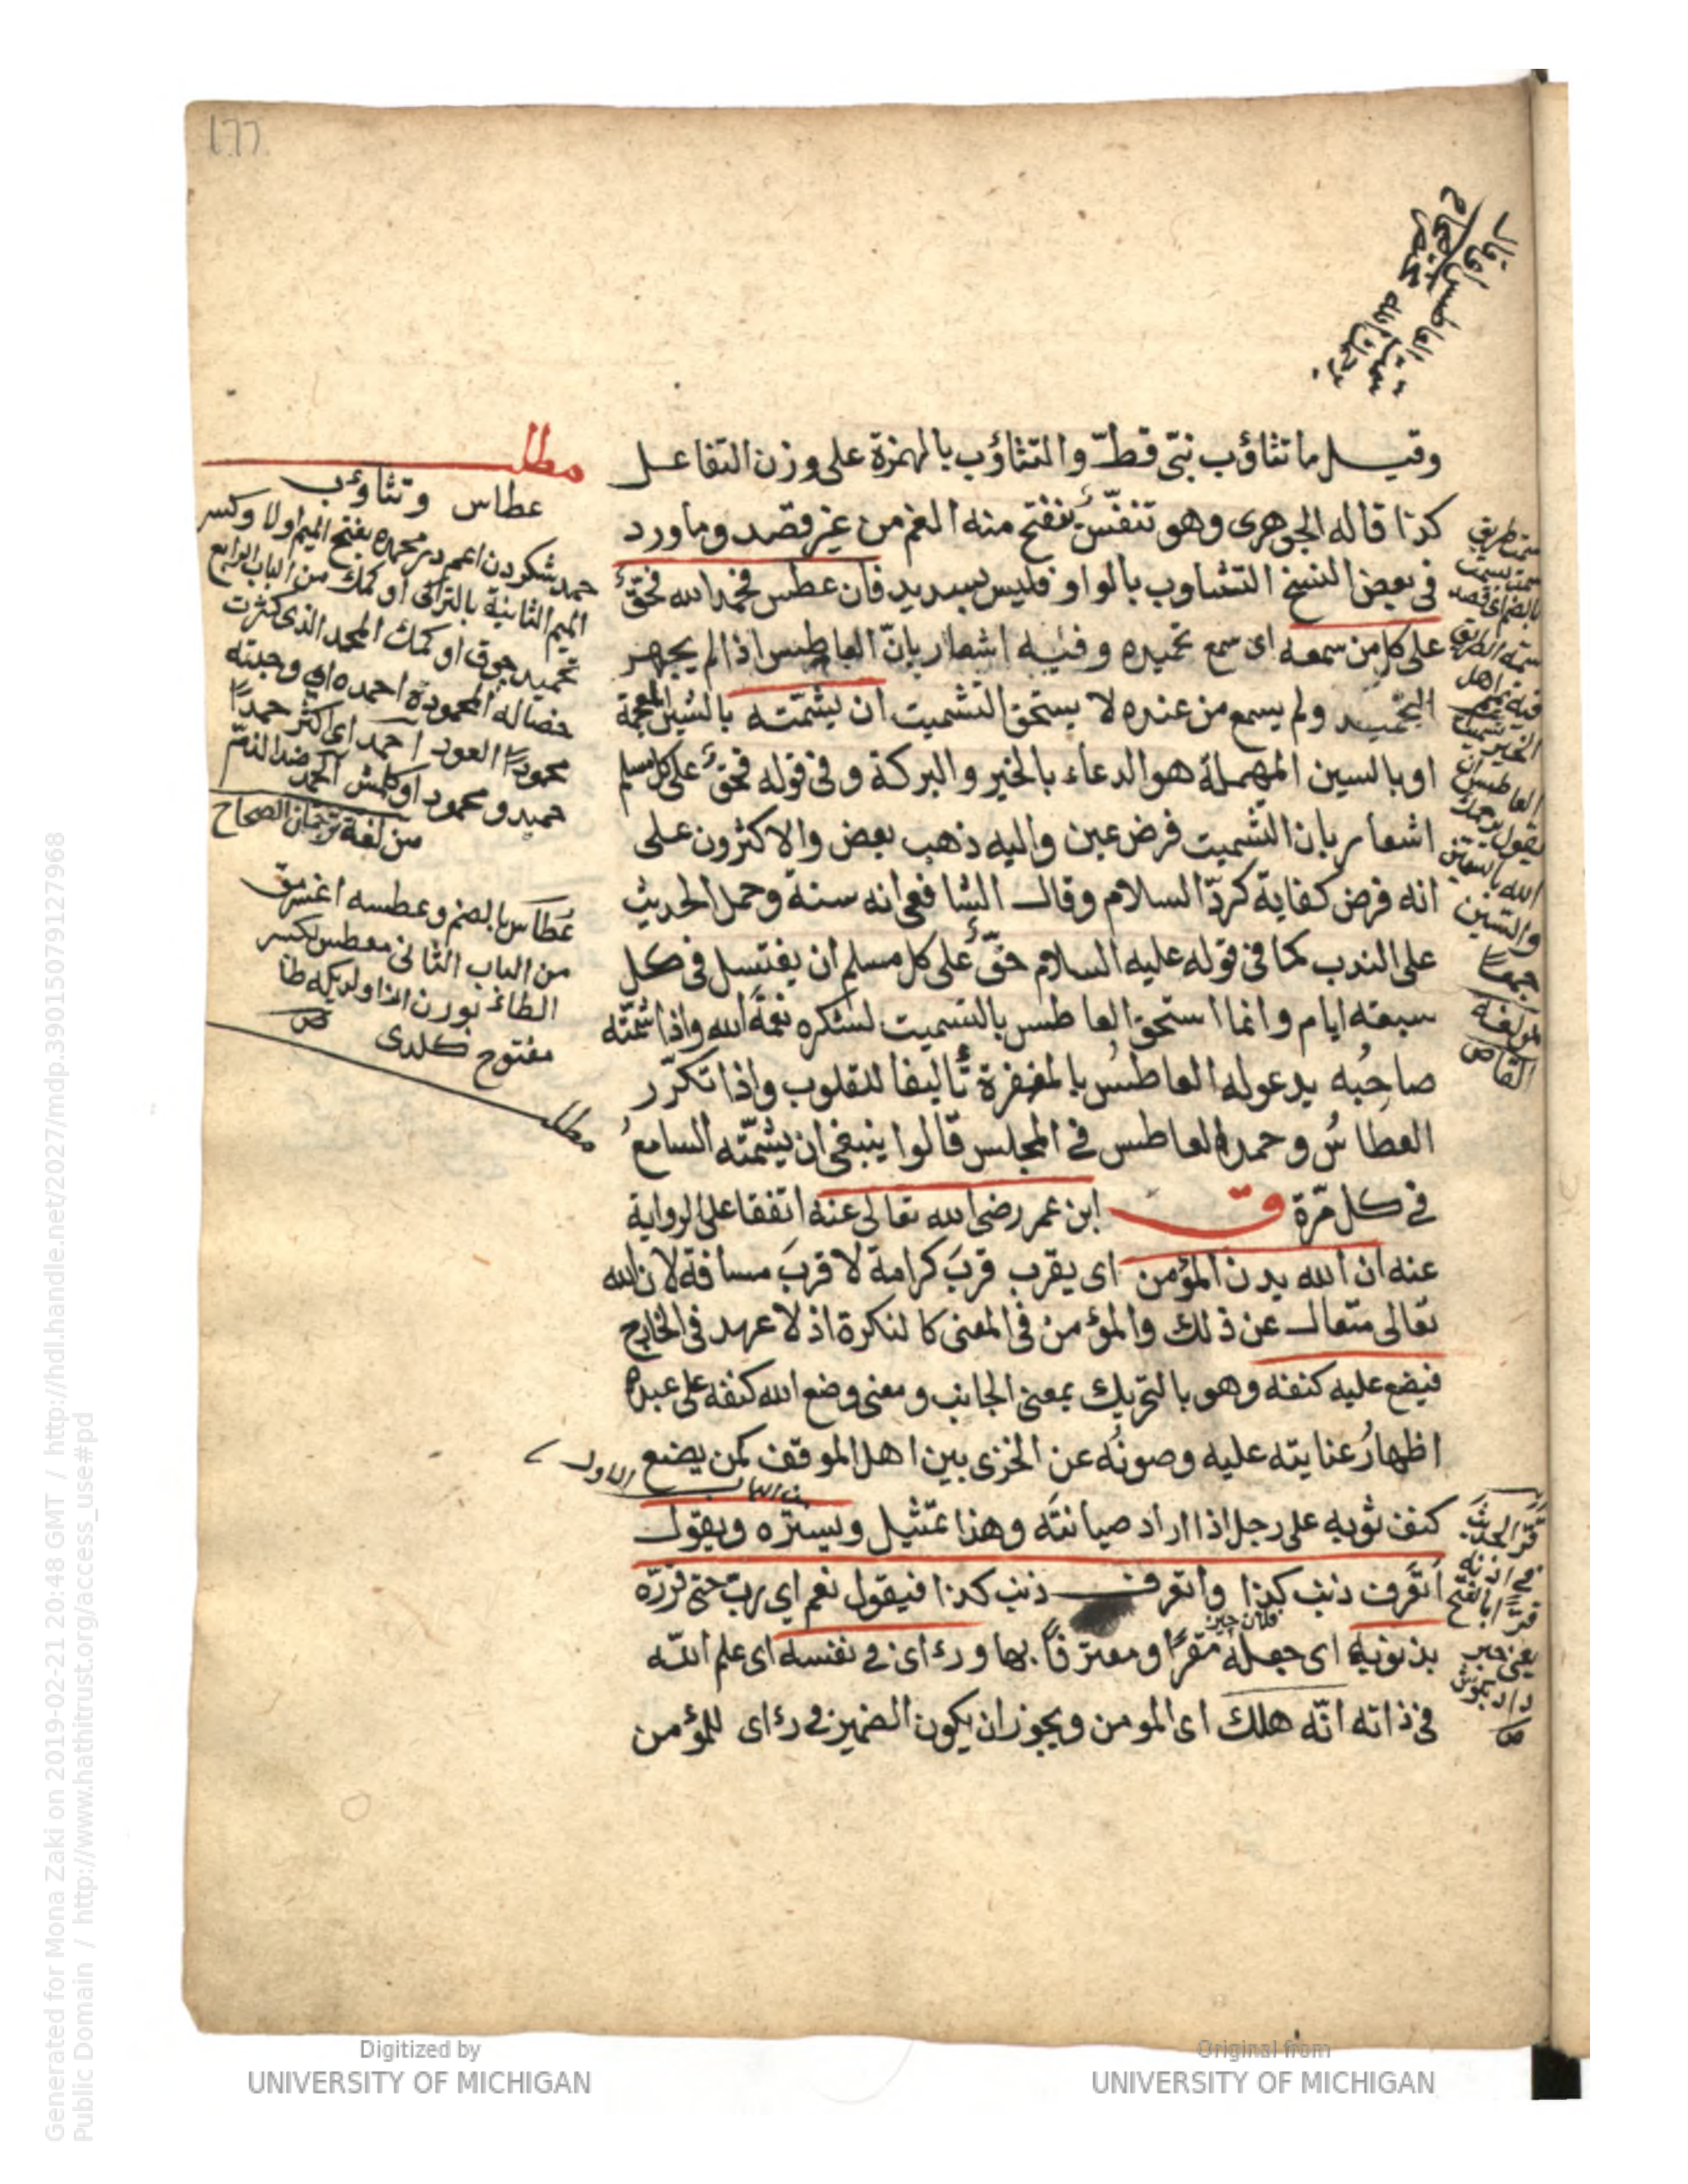 177
وقيل ما تثاؤب نبّى قطّ والتثاؤب بالهمزة على وزن التفاعل
كذا قاله الجوهرى وهو تنفّس ينفتح منه الفم من غير قصد وما ورد
فى بعض النسخ التثاوب بالواو فليس بسديد فان عطس فحمد الله فحقّ
على كل من سمعه اى سمع تحميده وفيه اشعار بانّ العاطس اذا لم يجهر
التحميد ولم يسمع من عنده لا يستحق التشميت ان يشمّته بالشين المعجمة
او بالسين المهملة هو الدعاء بالخير والبركة وفى قوله فحقّ على كل مسلم
اشعار بان التشميت فرض عين واليه ذهب بعض والاكثرون على
انه فرض كفاية كردّ السلام وقال الشافعى انه سنة وحمل الحديث
على الندب كما فى قوله عليه السلام حقّ على كل مسلم ان يغتسل فى كل
سبعة ايام وانما استحق العاطس بالتسميت لشكره نعمة الله واذا شمّته
صاحبه يدعو له العاطس بالمغفرة تأليفا للقلوب واذا تكرّر
العطاس وحمد العاطس فى المجلس قالوا ينبغى ان يشمّته السامع
فى كل مرّة ق ابن عمر رضى الله تعالى عنه اتفقا على الرواية
عنه ان الله يدن المؤمن اى يقرب قرب كرامة لا قرب مسافة لان الله
تعالى متعال عن ذلك والمؤمن فى المعنى كالنكرة اذ لا عهد فى الخارج
فيضع عليه كنفه وهو بالتحريك بمعنى الجانب ومعنى وضع الله كنفه على عبده
اظهار عنايته عليه وصونه عن الخزى بين اهل الموقف كمن يضع
من الباب الاول
كنف ثوبه على رجل اذا اراد صيانته وهذا تمثيل ويستره ويقول
اتعرف ذنب كذا واتعرف ذنب كذا فيقول نعم اى ربّ حتى قرّره
بذنوبه اى جعله مقرّا ومعترفا بها ورءاى فى نفسه اى علم الله
فى ذاته انّه هلك اى المومن ويجوز ان يكون الضمير فى رءاى للمؤمن
مطلب
عطاس وتثاؤب
حمد شكر دن اعمدر محمده بفتح الميم اولا وكسر
الميم الثانية بالتركى اوكمك من الباب الرابع
تحميد چوق اوكمك المحمد الذى كثرت
خصاله المحمودة احمده اى وجدته
محمودا العود احمد اى اكثر حمدًا
حميد ومحمود اوكلمش الحمد ضد الذمّ
من لغة ترجمان الصحاح
عُطاس بالضم وعطسه اغسرمق
من الباب الثانى معطس بكسر
الطاء بورن
مفتوح كلدى ص
مطلب
Generated for Mona Zaki on 2019-02-21 20:48 GMT / http://hdl.handle.net/2027/mdp.39015079127968
Public Domain / http://www.hathitrust.org/access_use#pd
Digitized by
UNIVERSITY OF MICHIGAN
Original from
UNIVERSITY OF MICHIGAN